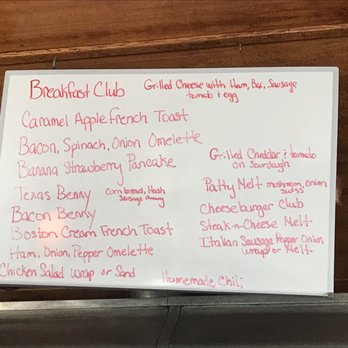 Breakfast Club
Grilled Cheese with Ham, Bac, Sausage
tomato & egg
Caramel Apple French Toast
Bacon, Spinach, Onion Omelette
Banana Strawberry Pancake
Texas Benny
Cornbread, Hash
Sausage Gravy
Bacon Benny
Boston Cream French Toast
Ham, Onion, Pepper Omelette
Chicken Salad Wrap or Sand
Grilled Cheddar & tomato
on Sourdough
Patty Melt mushroom, onion
Swiss
Cheeseburger Club
Steak-n-Cheese Melt
Italian Sausage Pepper Onion
Wrap or Melt
Homemade Chili